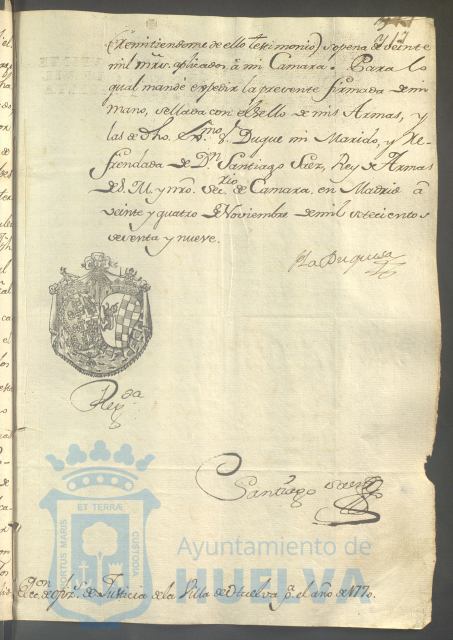 (Remitiendome de ello testimonio) so pena de veinte
mil mrs. aplicados à mi Camara. Para lo
qual mandé expedir la presente firmada de mi
mano, sellada con el Sello de mis Armas, y
las de dho. Duque mi Marido, y Re-
frendada de Dn. Santiago Saez, Rey de Armas
de S. M. y nro. Secrio. de Camara, en Madrid à
veinte y quatro de Noviembre de mil setecientos
sesenta y nueve.
La Duquesa
Regda.
Santiago Saez
ET TERRÆ
PORTUS MARIS
CUSTODIA
Ayuntamiento de
HUELVA
de Justicia de la Villa de Huelva pa. el año de 1770.